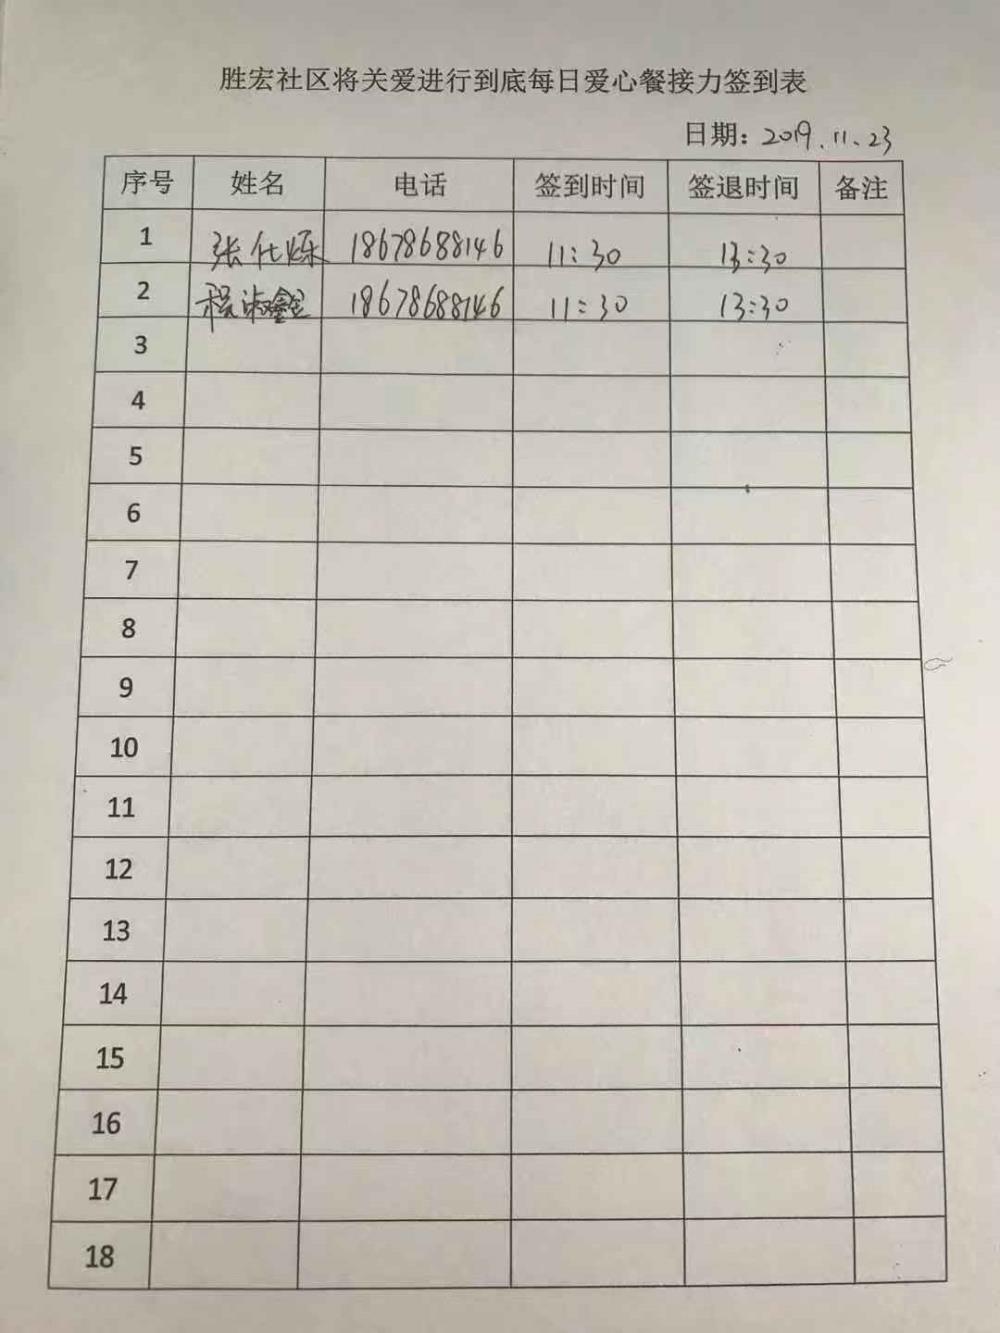 胜宏社区将关爱进行到底每日爱心餐接力签到表
日期: 2019.11.23
序号 姓名 电话 签到时间 签退时间 备注
1 张仕烁 18678688146 11:30 13:30
2 程淑鑫 18678688146 11:30 13:30
3
4
5
6
7
8
9
10
11
12
13
14
15
16
17
18